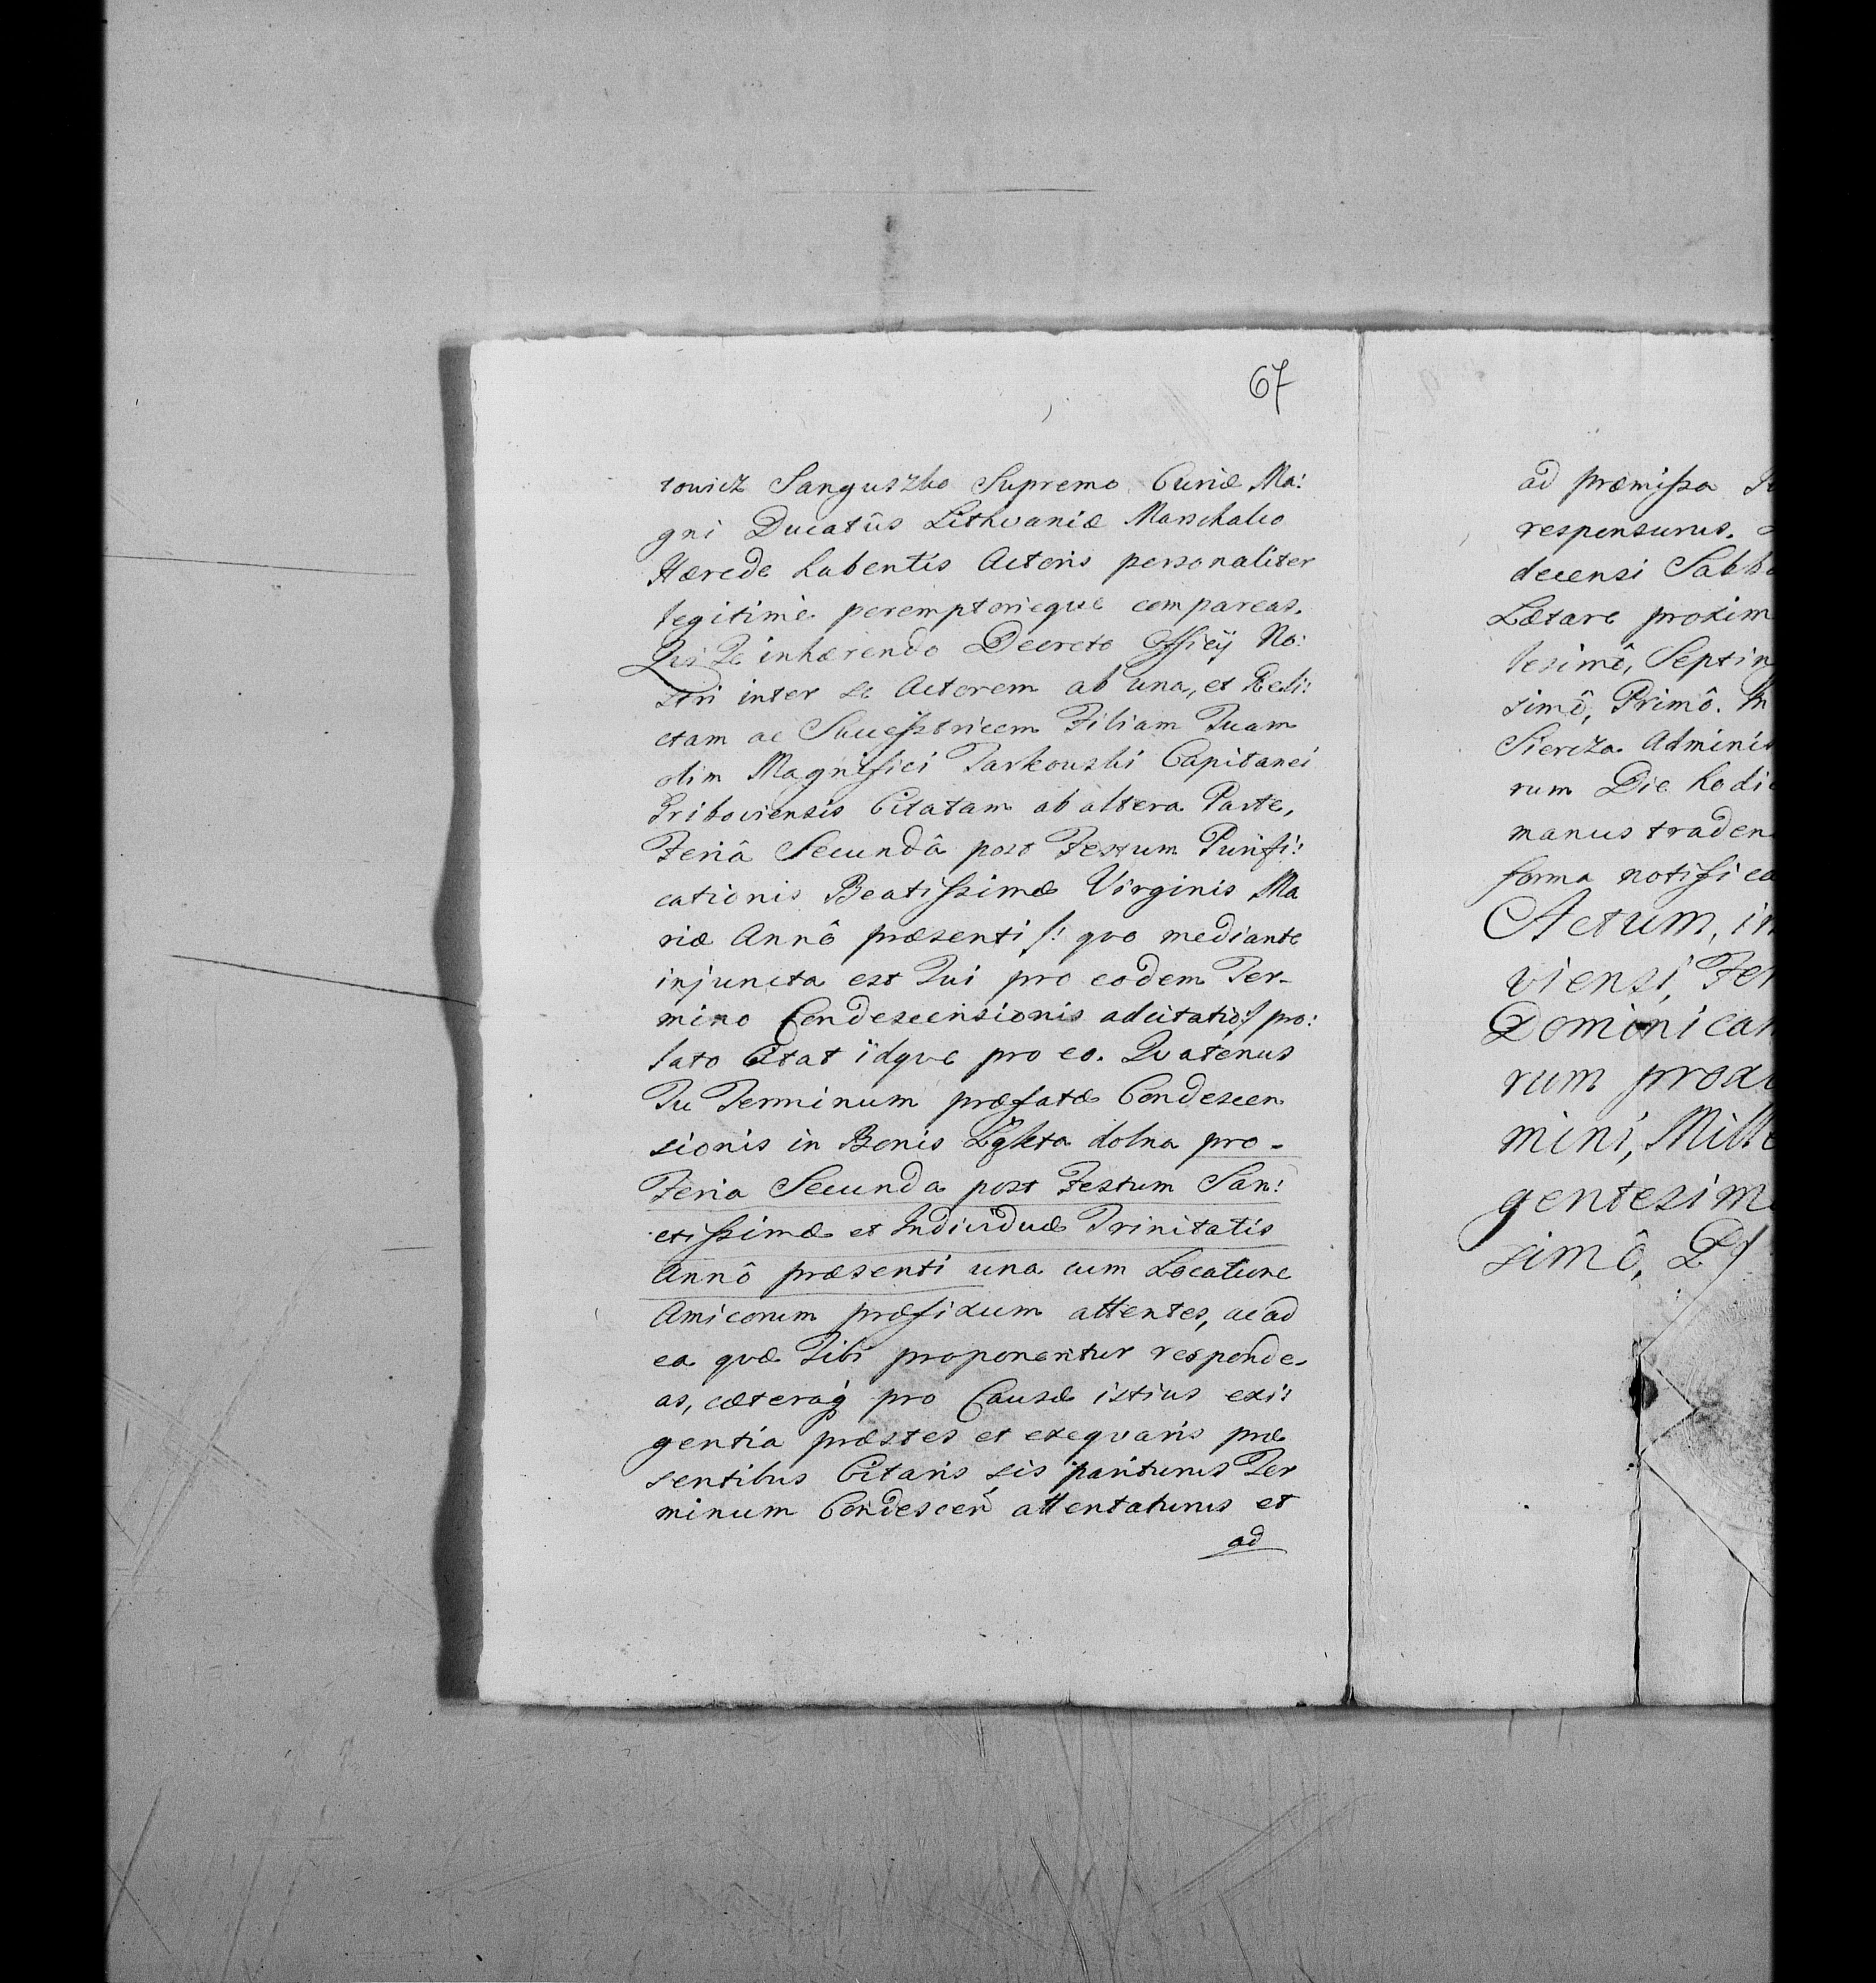 67
towicz Sanguszko Supremo Curiæ Ma:
gni Ducatûs Lithvaniæ Marschalco
Hærede habentis Actoris personaliter
legitime peremptorieque compareas.
Qui Te inhærendo Decreto Officij No:
stri inter se Actorem ab una, et Reli:
ctam ac Successtricem Filiam Tuam
olim Magnifici Jarkowski Capitanei
Briboviensis Citatam ab altera Parte,
Feriâ Secundâ post Festum Purifi:
cationis Beatissimæ Virginis Ma
riæ Annô præsenti /: quo mediante
injuncta est Tui pro eodem Ter-
mino Condescensionis adcitatio :/ pro:
lato Citat idque pro eo. Quatenus
Tu Terminum præfatæ Condescen
sionis in Bonis dolna pro-
Feria Secunda post Festum San:
ctissimæ et Individuæ Trinitatis
Annô præsenti una cum Locatione
Amicorum præfixum attentes, ac ad
ea quæ Tibi proponentur responde-
as, cæteraq pro Causæ istius exi:
gentia præstes et exequaris præ
sentibus Citaris sis pariturus Ter
minum Condescen attentaturus et
ad
ad præmissa
responsurus.
decensi
Lætare
tesimô,
simô, Primô.
Siercza
rum Die
manus
forma
Actum,
viensi,
rum
mini,
simô,